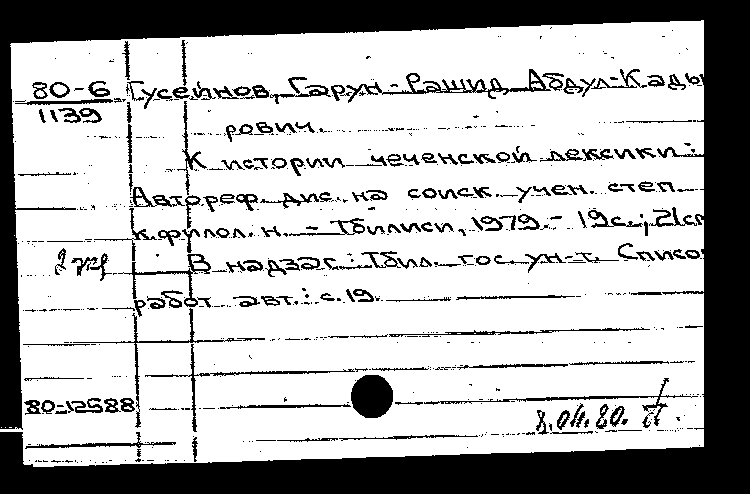 80-6 Гусейнов, Гарун-Рашид Абдул-Кады
1139
рович.
К истории чеченской лексики:
Автореф. дис. на соиск. учен. степ.
к.филол.н. - Тбилиси, 1979.- 19с.; 21см
2 экз
В надзаг: Тбил. гос. ун-т. Список
работ авт.: с.19.
80-12588
8.04.80.